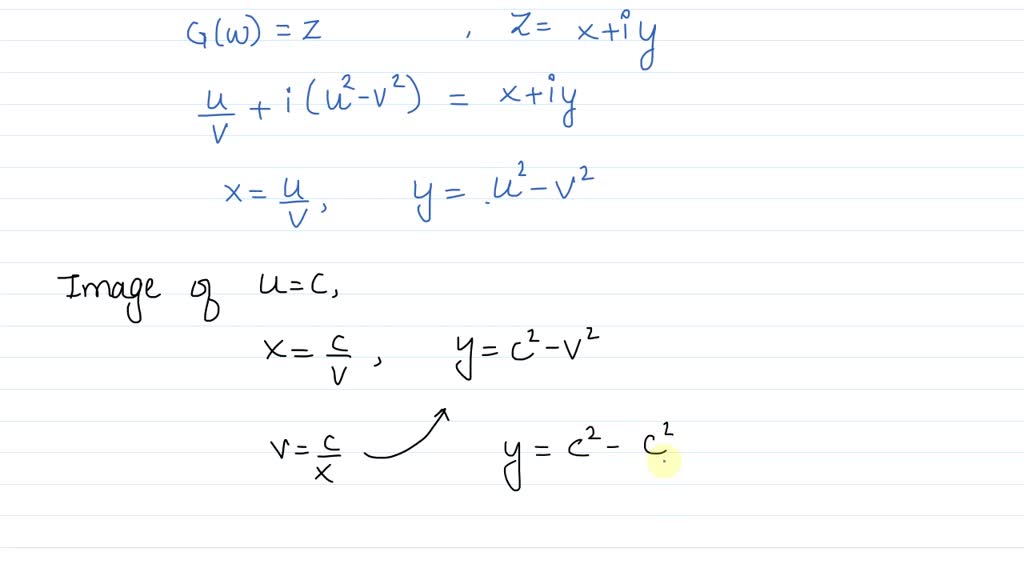 G(w) = z , z = x+iy
u/v + i(u²-v²) = x+iy
x = u/v, y = u²-v²
Image of u=c,
x = c/v, y = c²-v²
v = c/x y = c² - c²